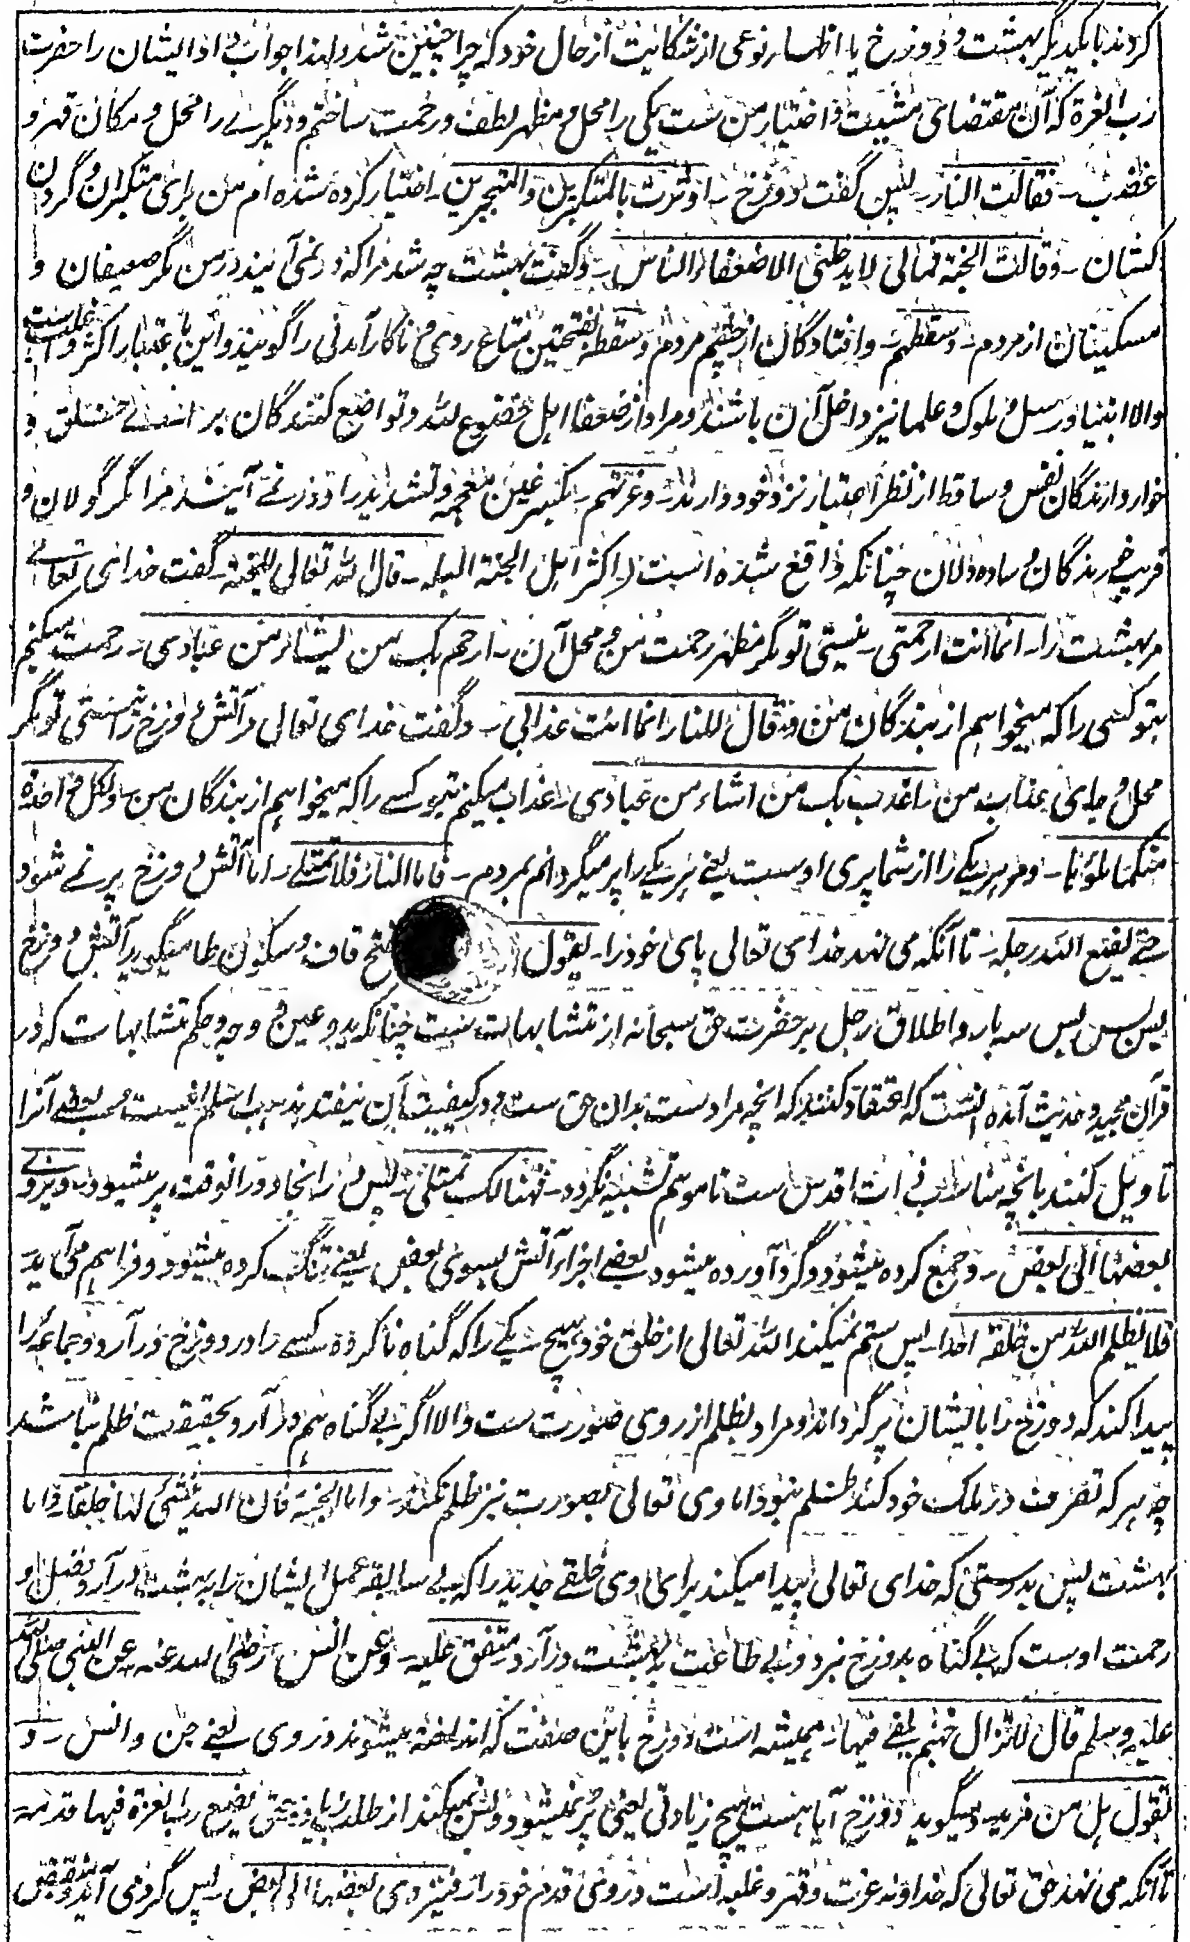 کردند با یکدیگر بهشت و دوزخ یا اظهار نوعی از شکایت از حال خود که چرا چنین شد ولهذا جواب داد ایشان را حضرت
رب العزة که آن مقتضای مشیت و اختیار من ست یکی را محل و مظهر لطف و رحمت ساختم و دیگرے را محل و مکان قهر و
غضب ۔ فقالت النار ۔ پس گفت دوزخ ۔ اوثرت بالمتکبرین والمتجبرین ۔ اختیار کرده شده ام من برای متکبران و گردن
کشان ۔ وقالت الجنة فمالی لا یدخلنی الا ضعفاء الناس ۔ و گفت بهشت چه شد مرا که در نمی آیند در من مگر ضعیفان و
مسکینان از مردم ۔ وسقطهم ۔ و افتادگان از چشم مردم و سقط بفتحتین متاع ردی و ناکارآمدنی را گویند و این باعتبار اکثر و اغلب ست
والا انبیا و رسل و ملوک و علما نیز داخل آن باشند و مراد از ضعفا اهل خضوع لله و تواضع کنندگان بر خلق و
خوار دارندگان نفس و ساقط از نظر اعتبار نزد خود دارند ۔ وغرتهم ۔ بکسر غین معجمه و تشدید را و در نے آیند مرا مگر گولان و
فریب خورندگان و ساده دلان چنانکه واقع شده است اکثر اهل الجنة البله ۔ قال الله تعالی للجنة ۔ گفت خدای تعالے
مر بهشت را ۔ انما انت رحمتی ۔ نیستی تو مگر مظهر رحمت من و محل آن ۔ ارحم بک من اشاء من عبادی ۔ رحمت میکنم
بتو کسی را که میخواهم از بندگان من وقال للنار انما انت عذابی ۔ و گفت خدای تعالی مر آتش دوزخ را نیستی تو مگر
محل و جای عذاب من ۔ اعذب بک من اشاء من عبادی ۔ عذاب میکنم بتو کسے را که میخواهم از بندگان من ۔ ولکل واحدة
منکما ملؤها ۔ و مر هر یکے را از شما پری اوست یعنے هر یکے را پر میگردانم بمردم ۔ فاما النار فلا تمتلے ۔ اما آتش دوزخ پر نے شود
حتے یضع الله رجله ۔ تا آنکه می نهد خدای تعالی پای خود را ۔ یقول فتح قاف و سکون طا میگوید آتش دوزخ
بس بس بس سه بار و اطلاق رجل بر حضرت حق سبحانه از متشابهات ست چنانکه ید و عین و وجه و حکم متشابهات که در
قرآن مجید و حدیث آمده آنست که اعتقاد کنند که آنچه مراد ست بدان حق ست و در کیفیت آن نیفتند مذهب اسلم اینست و بعضے آنرا
تاویل کنند بانچه مناسب ذات اقدس ست تا موهم تشبیه نگردد ۔ فهنالک تمتلی ۔ پس در اینجا و در آنوقت پر میشود ۔ ویزوے
بعضها الی بعض ۔ و جمع کرده میشود و گرد آورده میشود بعضے اجزاء آتش بسوی بعض یعنے تنگ کرده میشود و فراهم می آید
فلا یظلم الله من خلقه احدا ۔ پس ستم نمیکند الله تعالی از خلق خود هیچ یکے را که گناه ناکرده کسے را در دوزخ در آرد و جماعه را
پیدا کند که دوزخ را بایشان پر گرداند و مراد بظلم از روی صورت ست والا اگر بے گناه هم در آرد بحقیقت ظلم نباشد
چه هر که تصرف در ملک خود کند ظلم نبود اما وی تعالی بصورت نیز ظلم نکند ۔ واما الجنة فان الله ینشئ لها خلقا ۔ و اما
بهشت پس بدرستی که خدای تعالی پیدا میکند برای وی خلقے جدید را که بے سابقه عمل ایشان را به بهشت در آرد و فضل و
رحمت اوست که بے گناه بدوزخ نبرد و بے طاعت به بهشت در آرد ۔ متفق علیه ۔ وعن انس رضی الله عنه عن النبی صلی الله
علیه وسلم قال لا تزال جهنم یلقے فیها ۔ همیشه است دوزخ باین صفت که انداخته میشوند در وی یعنے جن و انس ۔ و
تقول هل من مزید ۔ و میگوید دوزخ آیا هست هیچ زیادتی یعنی پر نمیشود و بس نمیکند از طلب زیادتی ۔ حتی یضع رب العزة فیها قدمه
تا آنکه می نهد حق تعالی که خداوند عزت و قهر و غلبه است در وی قدم خود را ۔ فینزوی بعضها الی بعض ۔ پس گرد می آید